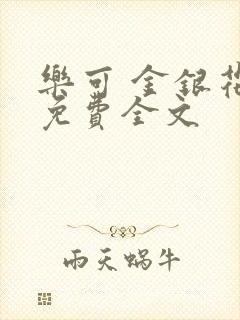 樂可 金銀花
免費全文
雨天蝸牛